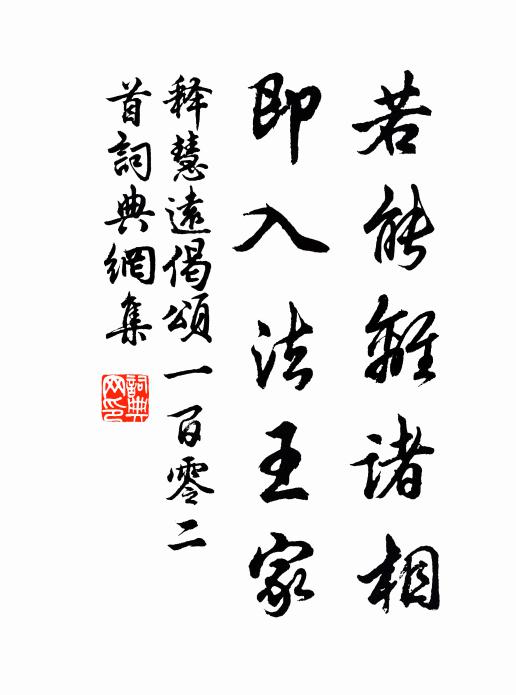 若能離諸相
即入法王家
释慧遠偈頌一百零二
首詞典網集
詞典网印